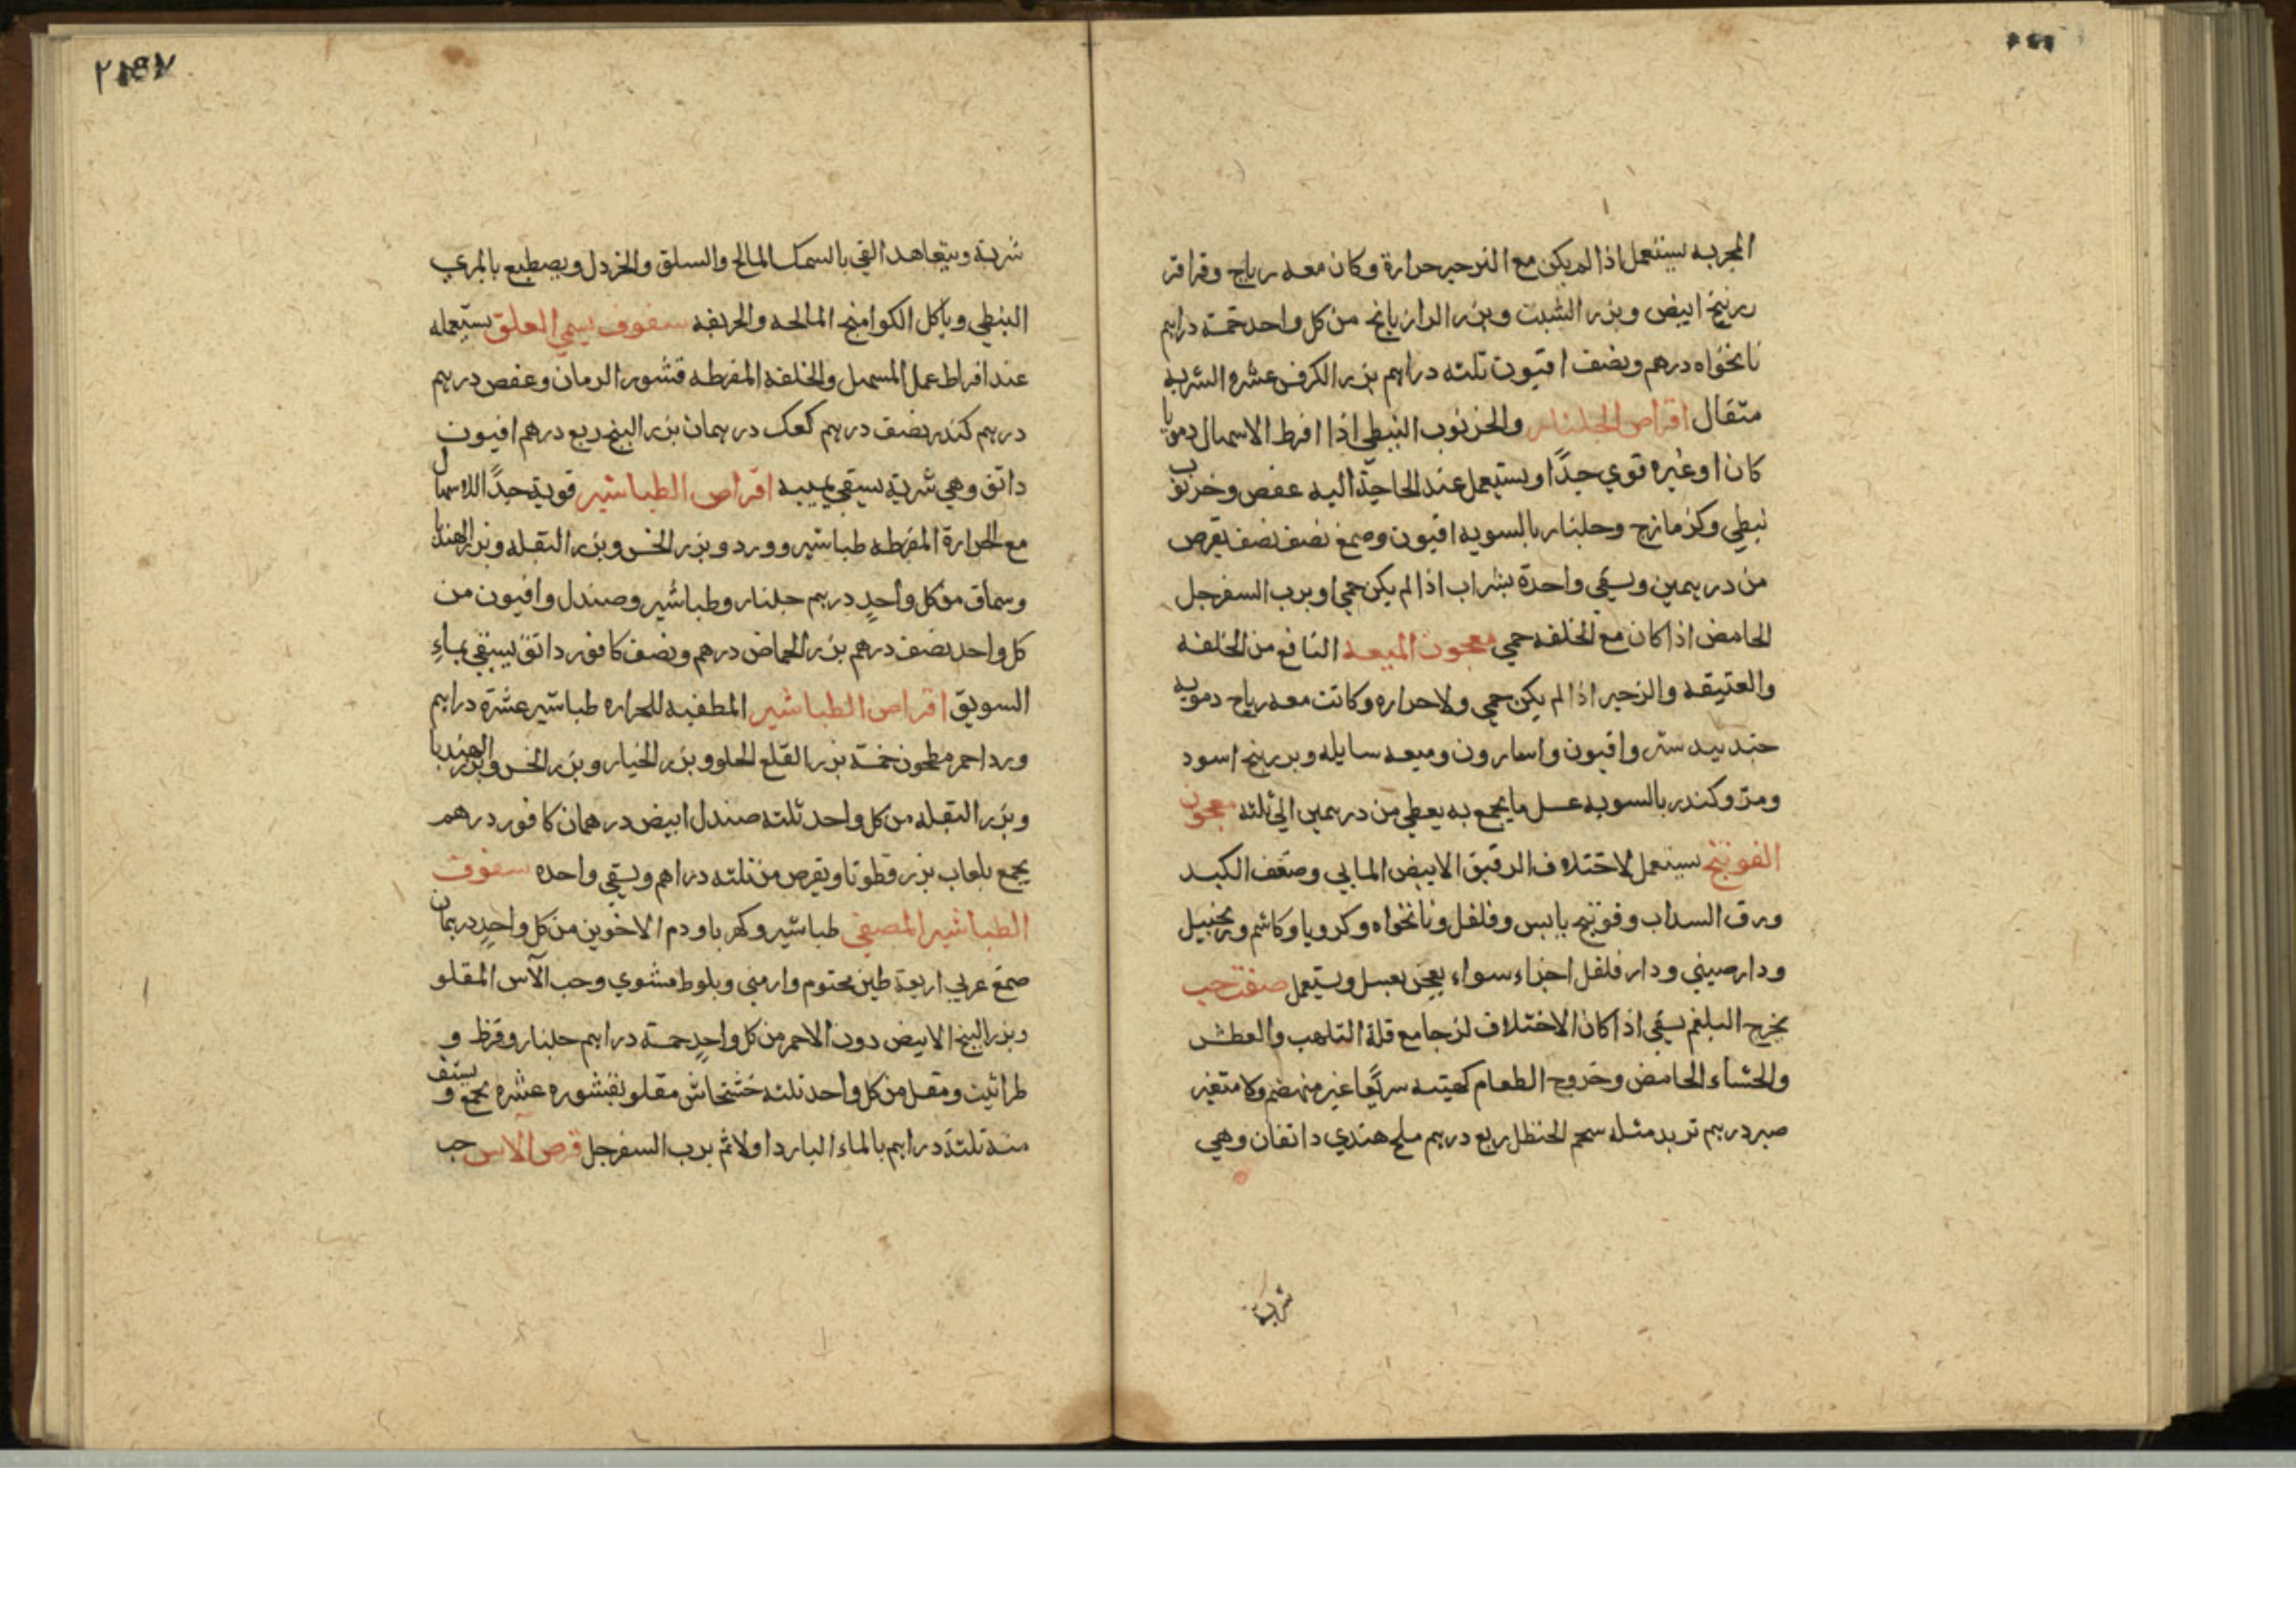 المجربه يستعمل اذا لم يكن مع الزحير حرارة وكان معه رياح وقراقر
بزرنبج ابيض وبزر الشبت وبزر الرازيانج من كل واحد خمسة دراهم
نانخواه درهم ونصف افيون ثلثه دراهم بزر الكرفس عشره الشربه
مثقال اقراص الجلنار والخرنوب النبطي اذا افرط الاسهال دمويا
كان او غيره قوي جدًا ويستعمل عند الحاجة اليه عفص وخرنوب
نبطي وكزمازج وجلنار بالسويه افيون وصمغ نصف نصف يقرص
من درهمين ويسقي واحدة بشراب اذا لم يكن حمي او برب السفرجل
الحامض اذا كان مع الخلفه حمي معجون الميعه النافع من الخلفه
والعتيقه والزحير اذا لم يكن حمي ولا حراره وكانت معه رياح دمويه
جندبيدستر وافيون واسارون وميعه سايله وبزربنج اسود
ومر وكندر بالسويه عسل ما يجمع به يعطي من درهمين الي ثلثه معجون
الفوتنج يستعمل لاختلاف الرقيق الابيض المايي وضعف الكبد
ورق السداب وفوتنج يابس وفلفل ونانخواه وكرويا وكاشم وزنجبيل
ودارصيني ودارفلفل اجزاء سواء يعجن بعسل ويستعمل صفت حب
يخرج البلغم يسقي اذا كان الاختلاف لزجا مع قلة التلهب والعطش
والجشاء الحامض وخروج الطعام كهيته سريعًا غير منهضم ولا متغير
صبر درهم تربد مثله سحم الحنظل ربع درهم ملح هندي دانقان وهي
شربة
شربة ويتعاهد القي بالسمك المالح والسلق والخردل ويصطبع بالمري
النبطي وياكل الكوامنج المالحه والحريفه سفوف يسمي العلق يستعمله
عند افراط عمل المسهل والخلفه المفرطه قشور الرمان وعفص درهم
درهم كندر نصف درهم كعك درهمان بزر البنج ربع درهم افيون
دانق وهي شربة يسقي بميبه اقراص الطباشير قوية جدًا للاسهال
مع الحرارة المفرطه طباشير وورد وبزر الخس وبزر البقله وبزر الهندبا
وسماق من كل واحدٍ درهم جلنار وطباشير وصندل وافيون من
كل واحد نصف درهم بزر الحماض درهم ونصف كافور دانق يسقي بماءِ
السويق اقراص الطباشير المطفيه للحراره طباشير عشرة دراهم
ورد احمر مطحون خمسة بزر القلع الحلو وبزر الخيار وبزر الخس وبزر الهندبا
وبزر البقله من كل واحد ثلثه صندل ابيض درهمان كافور درهم
يجمع بلعاب بزر قطونا ويقرص من ثلثه دراهم ويسقي واحده سفوف
الطباشير المصفي طباشير وكهربا ودم الاخوين من كل واحدٍ درهمان
صمغ عربي اربعة طين مختوم وارمني وبلوط مشوي وحب الآس المقلو
وبزر البنج الابيض دون الاحمر من كل واحدٍ خمسة دراهم جلنار وقرظ و
طراثيث ومقل من كل واحد ثلثه خشخاش مقلو بقشوره عشره يجمع ويستف
منه ثلثة دراهم بالماء البارد اولا ثم برب السفرجل قرص الآس حب